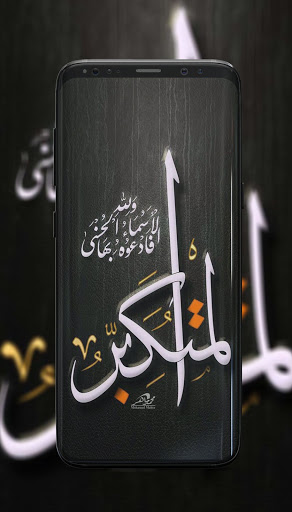 ولله
الأسماء الحسنى
فادعوه بها
المتكبر